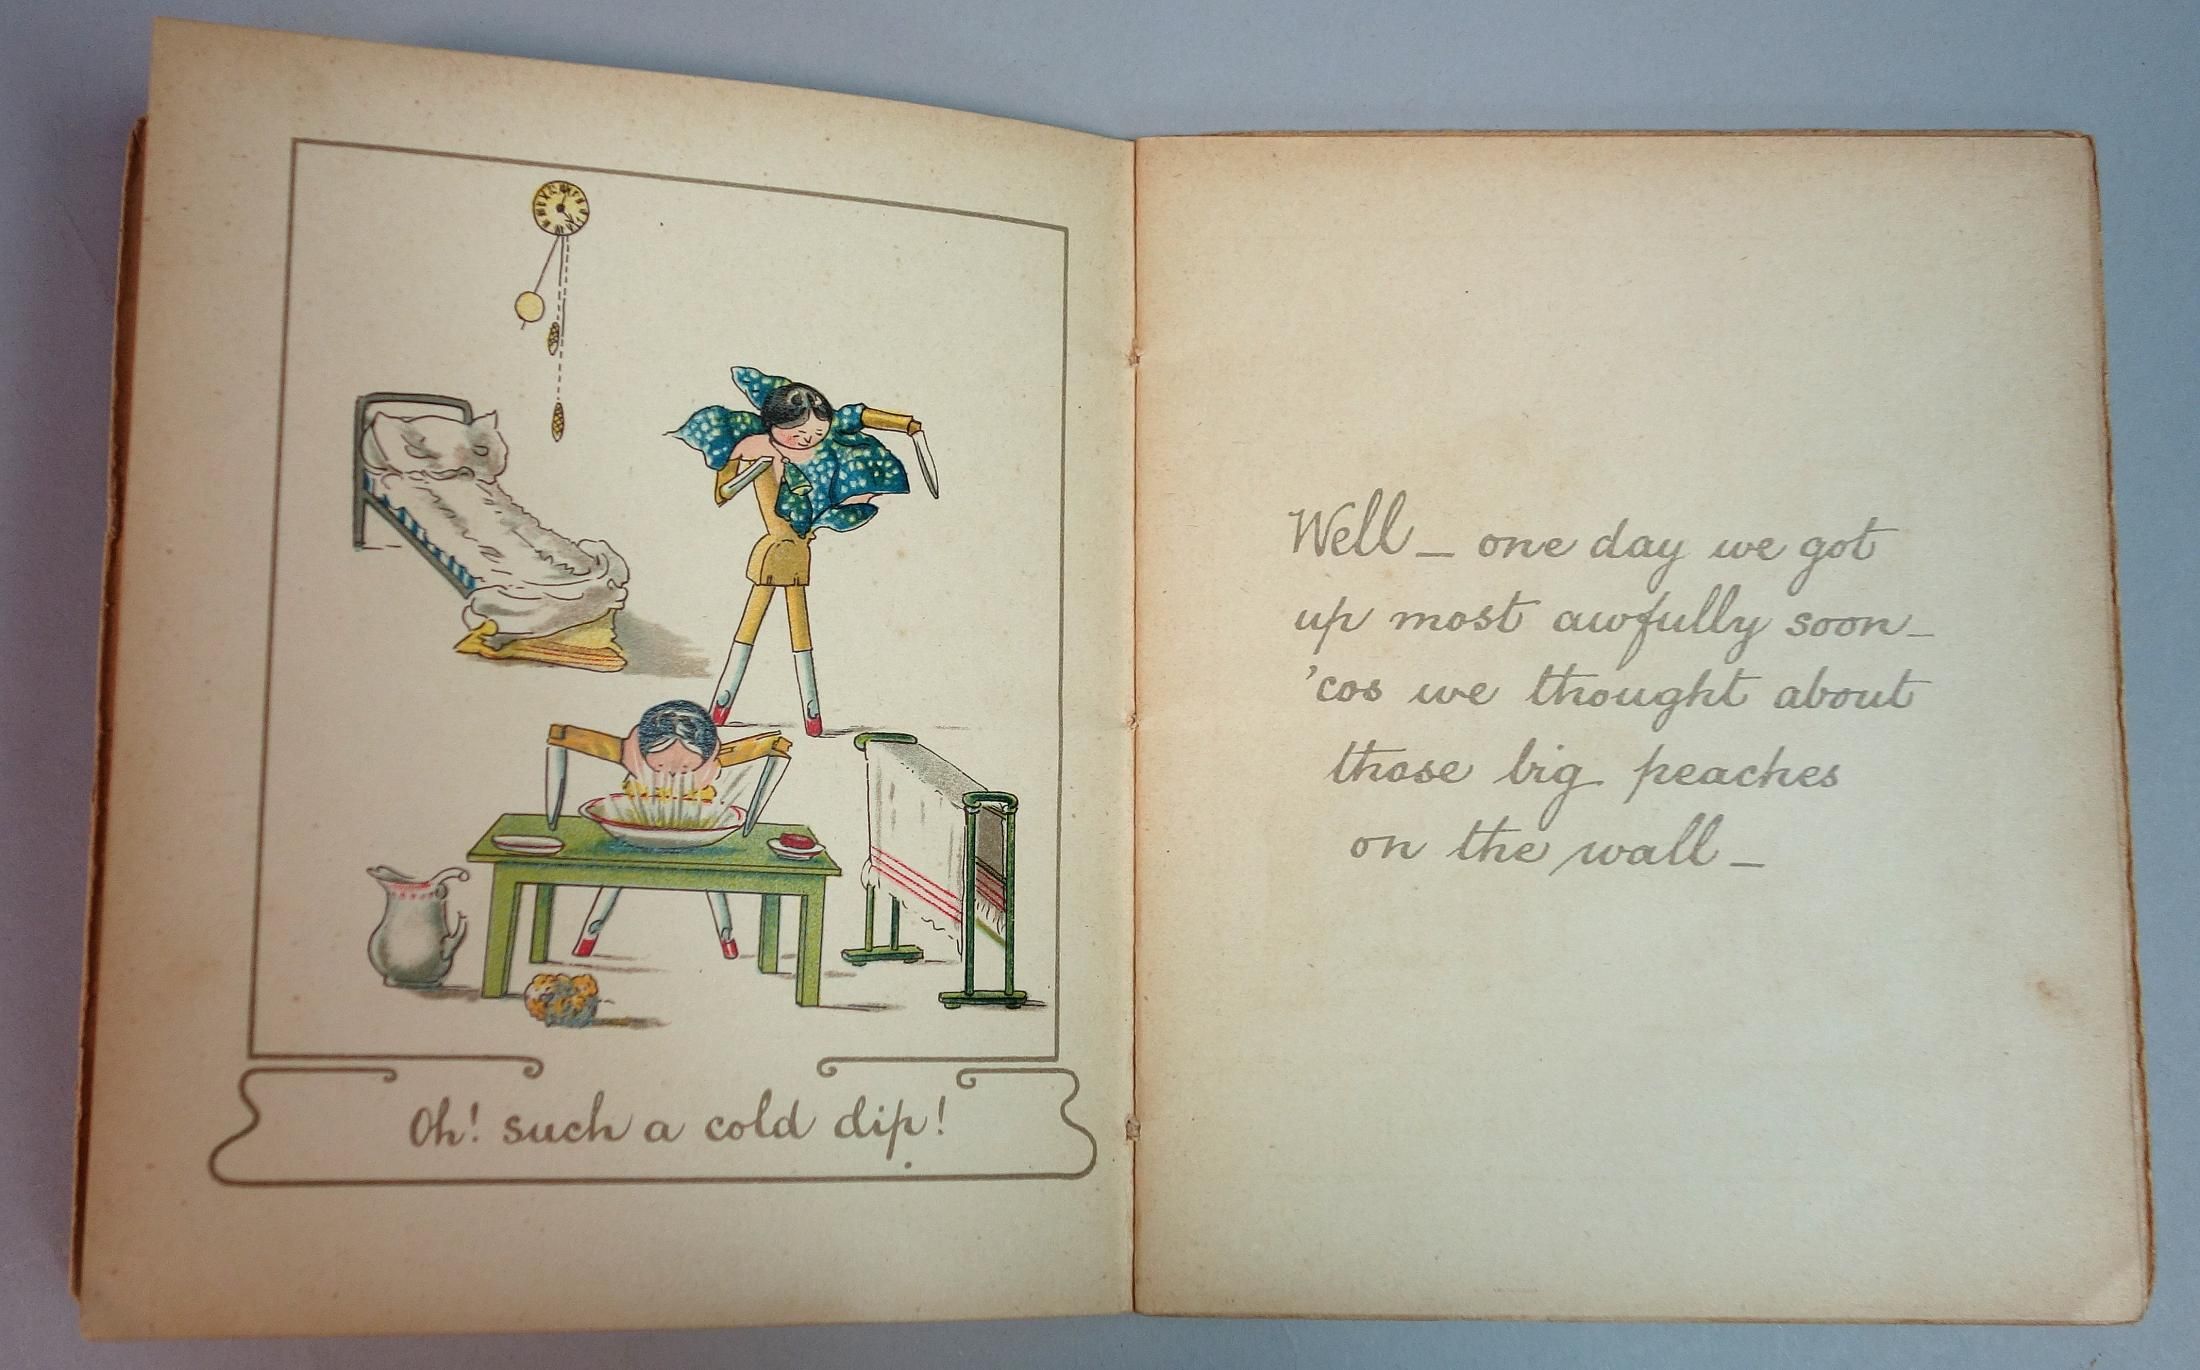 Oh! such a cold dip!
Well — one day we got
up most awfully soon —
'cos we thought about
those big peaches
on the wall —